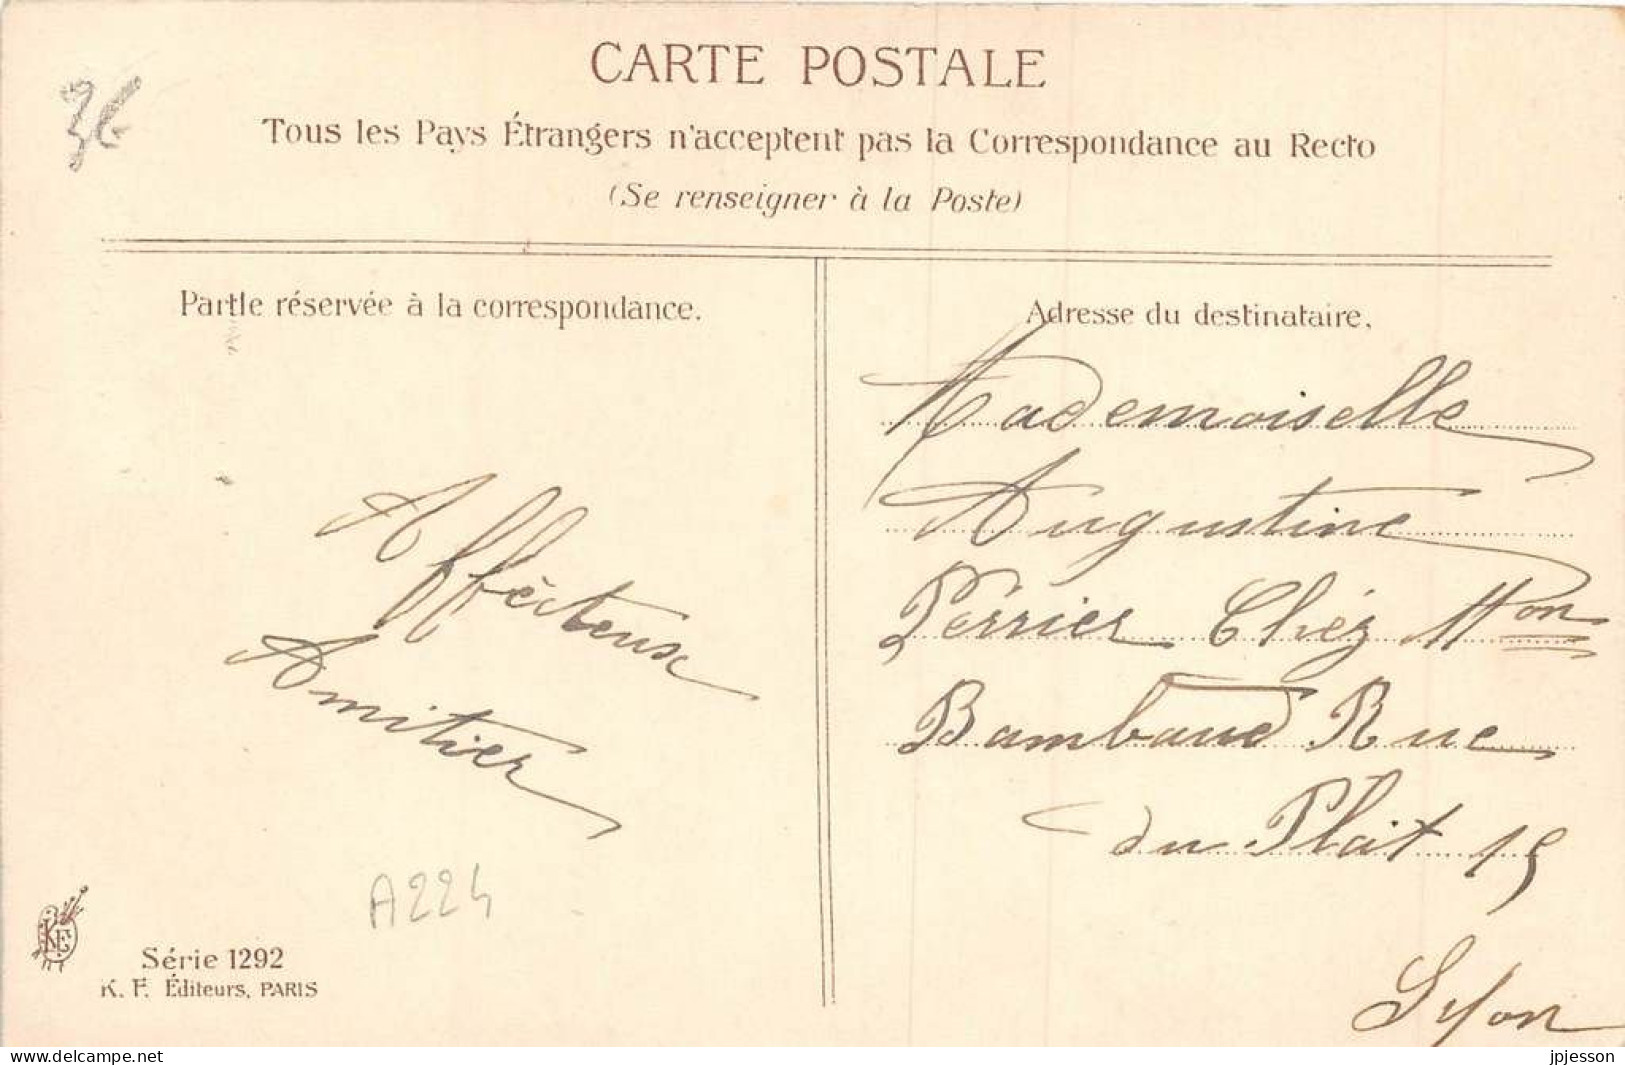 CARTE POSTALE
3€
Tous les Pays Étrangers n'acceptent pas la Correspondance au Recto
(Se renseigner à la Poste)
Partie réservée à la correspondance.
Affècteuse
Amitier
A224
KF
Série 1292
K. F. Éditeurs, PARIS
Adresse du destinataire,
Mademoiselle
Augustine
Pèrrier Chéz Mon
Bambaud Rue
du Plait 15
Lyon
www.delcampe.net
jpjesson